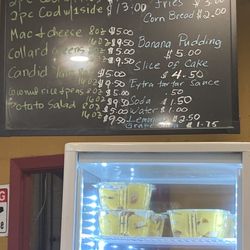 2pc Cod w/1side $13.00
Fries $3.00
Corn Bread $2.00
Mac & cheese 8oz $5.00
16oz $9.50
Collard Greens 8oz $5.00
16oz $9.50
Candid
Coconut rice & peas 8oz $5.00
16oz $9.50
Potato Salad 8oz $5.00
16oz $9.50
Banana Pudding
$5.00
Slice of Cake
$4.50
Extra tartar sauce
.50
Soda $1.50
Water $1.00
$2.50
$1.75